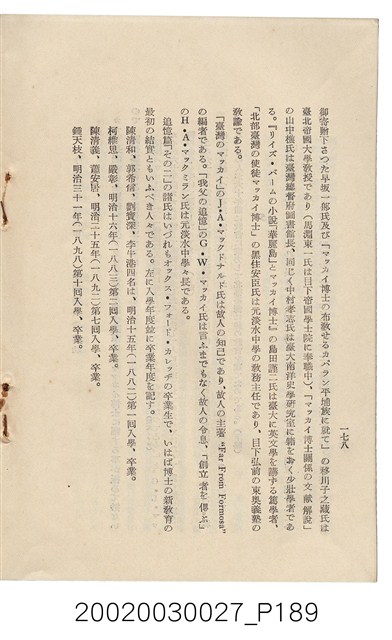 一七八
御寄贈下さつた早坂一郎氏及び「マッカイ博士の布教せるカバラン平埔族に就て」の移川子之藏氏は
臺北帝國大學教授であり(馬淵東一氏は目下帝國學士院に奉職中)、「マッカイ博士關係の文献解説」
の山中樵氏は臺灣總督府圖書館長、同じく中村孝志氏は臺大南洋史學研究室に籍をおく少壯學者であ
る。『リイズ・バームの小説「華麗島」とマッカイ博士』の島田謹二氏は臺大に英文學を講ずる篤學者、
「北部臺灣の使徒マッカイ博士」の黑住安臣氏は元淡水中學の教務主任であり、目下弘前の東奥義塾の
教諭である。
「臺灣のマッカイ」のJ・A・マックドナルド氏は故人の知己であり、故人の主著 "Far From Formosa"
の編者である。「我父の追憶」のG・W・マッカイ氏は言ふまでもなく故人の令息、「創立者を偲ぶ」
のH・A・マックミラン氏は元淡水中學々長である。
追憶篇「その二」の諸氏はいづれもオックス・フォード・カレッヂの卒業生で、いはば博士の新教育の
最初の結實ともいふべき人々である。左に入學年度竝に卒業年度を記す。
陳清和、郭希信、劉寶深、李牛港四名は、明治十五年(一八八二)第一囘入學、卒業。
柯維思、嚴彰、明治十六年(一八八三)第二囘入學、卒業。
陳清義、蕭安居、明治二十五年(一八九二)第七囘入學、卒業。
鍾天枝、明治三十一年(一八九八)第十囘入學、卒業。
20020030027_P189